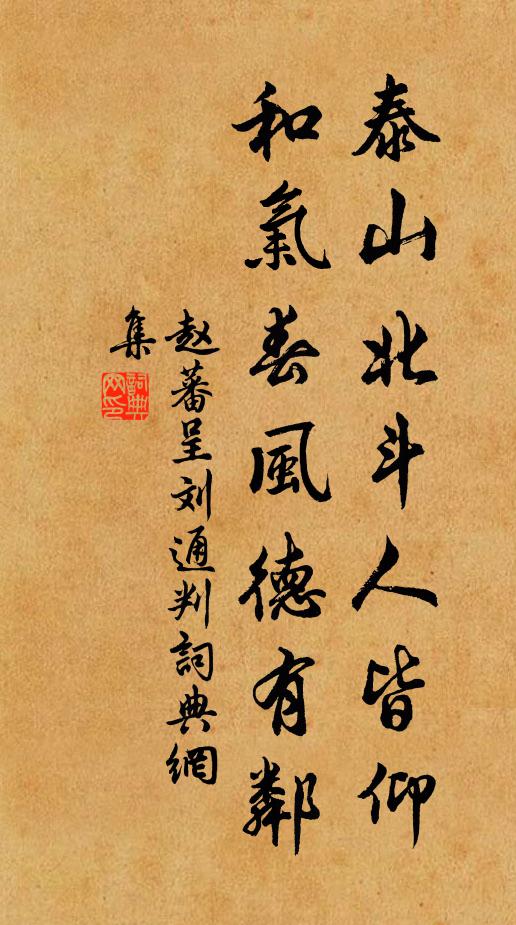 泰山北斗人皆仰
和氣春風德有鄰
赵蕃呈刘通判詞典網
集
詞典網印